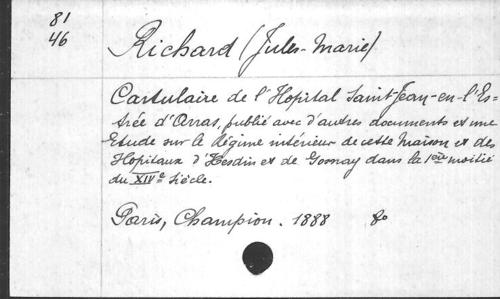 81
46
Richard (Jules-Marie)
Cartulaire de l'Hopital Saint-Jean-en-l'Es-
trée d'Arras, publié avec d'autres documents et une
Etude sur le Régime intérieur de cette Maison et des
Hopitaux d'Hesdin et de Gosnay dans la 1ère moitié
du XIVe siècle.
Paris, Champion. 1888 8o